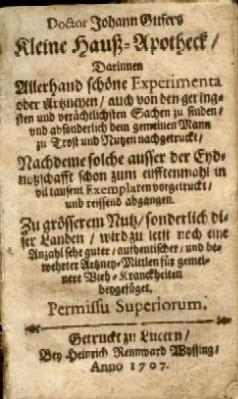 Doctor Johann Gufers
Kleine Hauß-Apotheck/
Darinnen
Allerhand schöne Experimenta
oder Artzneyen/ auch von den gering-
sten und verächtlichsten Sachen zu finden/
und absonderlich dem gemeinen Mann
zu Trost und Nutzen nachgetruckt/
Nachdeme solche ausser der Eyd-
notzschafft schon zum eilfftenmahl in
vil tausent Exemplaren vorgetruckt/
und reissend abgangen.
Zu grösserem Nutz/ sonderlich di-
ser Landen/ wird zu letst noch eine
Anzahl sehr guter/ authentischer/ und be-
wehrter Artzney-Mittlen für gemei-
nere Vieh-Kranckheiten
beygefüget.
Permissu Superiorum.
Getruckt zu Lucern/
Bey Heinrich Rennward Wyssing/
Anno 1707.